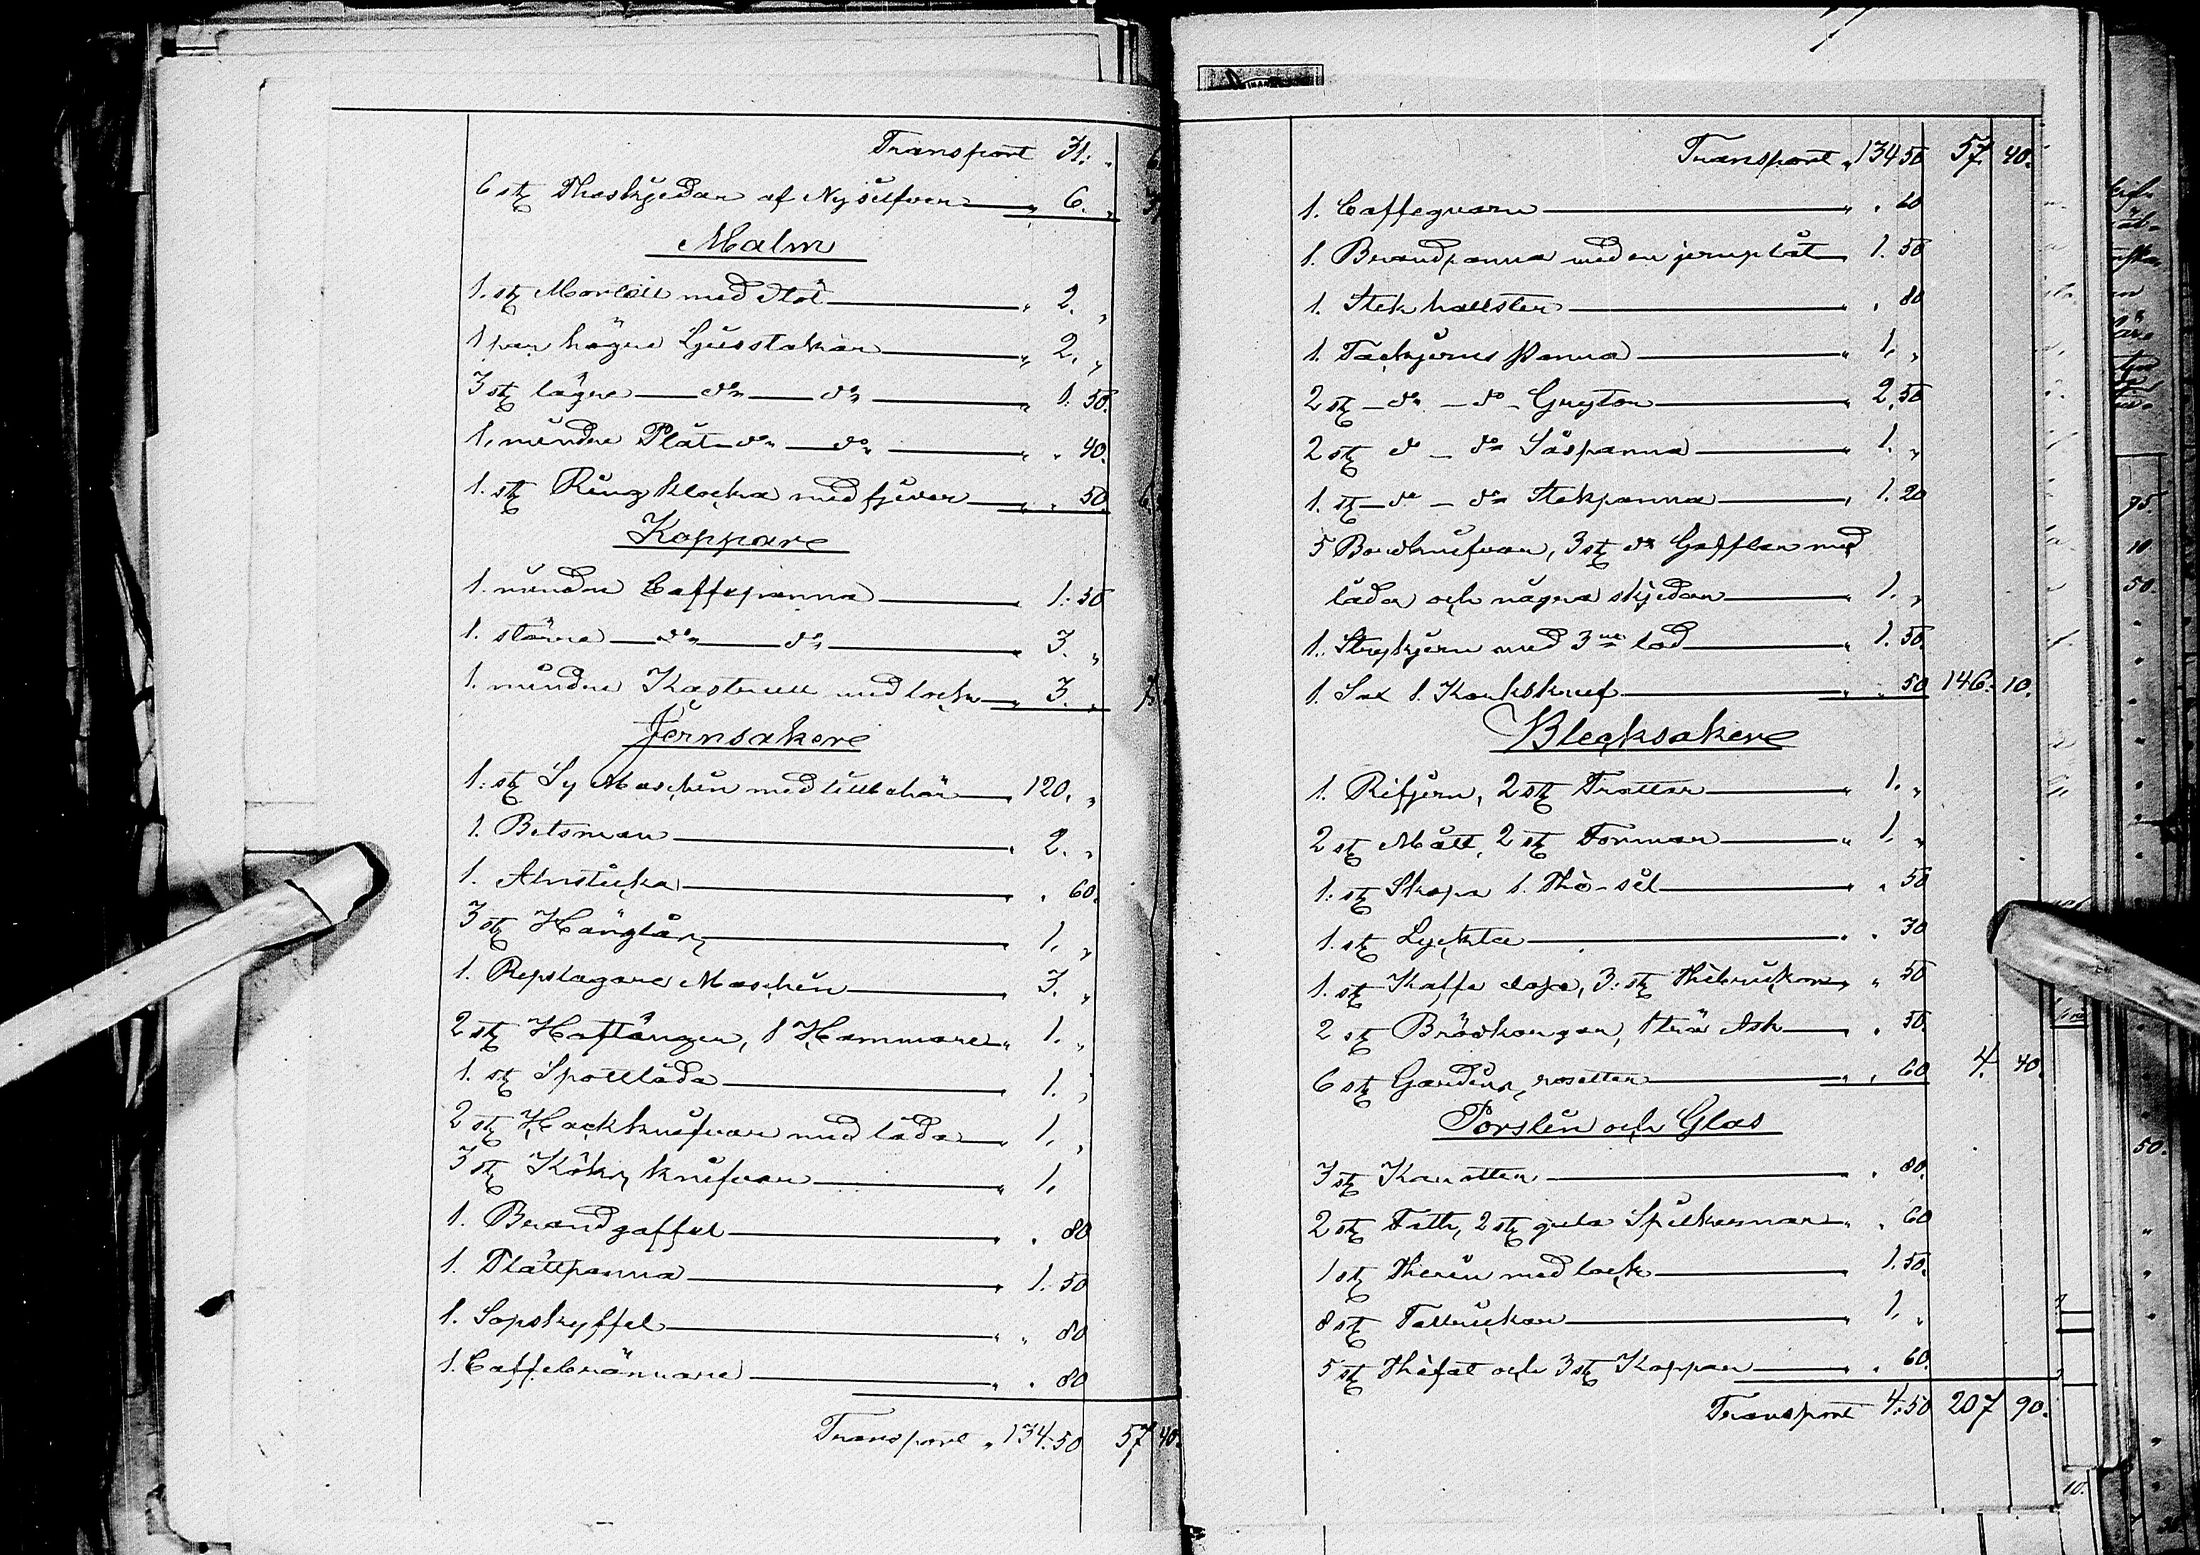 Transport 31. "
6 st Theskjedar af Nysilfver " 6. "
Malm
1. st Mortell med stöt " 2. "
1 par högre Ljusstakar " 2. "
3 st lägre d:o d:o " 1. 50.
1. mindre Plåt d:o d:o " " 40.
1. st Ringklocka med fjeder " " 50.
Koppar
1. mindre Caffepanna " 1. 50
1. större d:o d:o " 3. "
1. mindre Kastrull med lock " 3. "
Jernsaker
1. st Sy Maschin med tillbehör " 120. "
1. Betsman " 2. "
1. Alnsticka " 60.
3 st Hänglås 1. "
1. Repslagare Maschin " 3. "
2 st Hoftänger, 1 Hammare " 1. "
1. st Spottlåda " 1. "
2 st Hackknifvar med låda " 1. "
3 st Köksknifvar " 1.
1. Brandgaffel " " 80
1. Plättpanna " 1. 50
1. Sopskyffel " " 80
1. Caffebrännare " " 80
Transport " 134.50 57 40.
Transport " 134 50 57. 40.
1. Caffeqvarn " " 20
1. Brandpanna med en jernplåt 1. 50
1. Stekhallster " " 80
1. Tackjerns Panna " 1. "
2 st d:o d:o Grytor " 2. 50
2 st d:o d:o Såspanna " 1. "
1. st d:o d:o Stekpanna " 1. 20
5 Bordknifvar, 3 st d:o Gafflar med
låda och några skjedar " 1. "
1. Strykjern med 3ne lod " 1. 50.
1. Sax 1. Korkskruf " " 50 146. 10.
Blecksaker
1. Rifjern, 2 st Trattar " 1. "
2 st Mått, 2 st Formar " 1. "
1. st Skopa 1. The-sil " " 50
1. st Lyckta " " 30
1. st Kaffe dosa, 3. st Thebrickor " 50
2 st Brödkorgar, 1 trä Ask " 50.
6 st Gardins rosetter " " 60 4. 40.
Porslin och Glas
3 st Karotter " 80.
2 st Fath, 2 st gula Spilkummar " " 60
1 st Therin med lock " 1. 50.
8 st Tallrickar " 1. "
5 st Thefat och 3 st Koppar " " 60.
Transport 4.50 207 90.